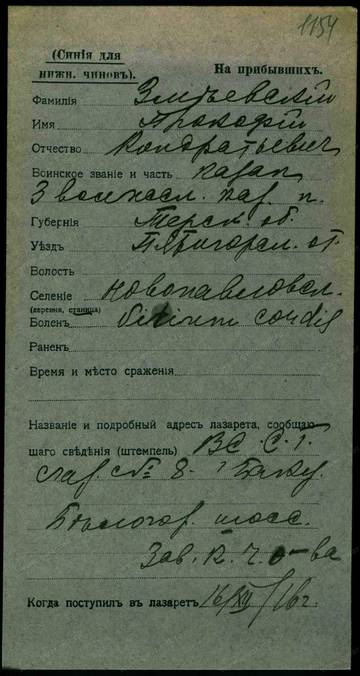 1154
(Синія для
нижн. чиновъ).
На прибывшихъ.
Фамилія Змѣевскій
Имя Прокофій
Отчество Кондратьевич
Воинское званіе и часть казак
3 каз. п.
Губернія Терск. об.
Уѣздъ Пятигорск. от.
Волость
Селеніе Новопавловск.
(деревня, станица)
Боленъ vitium cordis
Раненъ
Время и мѣсто сраженія
Названіе и подробный адресъ лазарета, сообщаю
щаго свѣдѣнія (штемпель) В С. С. Г.
лаз. № 8. Баку.
Бѣлогор. шосс.
Зав. К. Ч. о-ва
Когда поступилъ въ лазаретъ 16/XII/16 г.